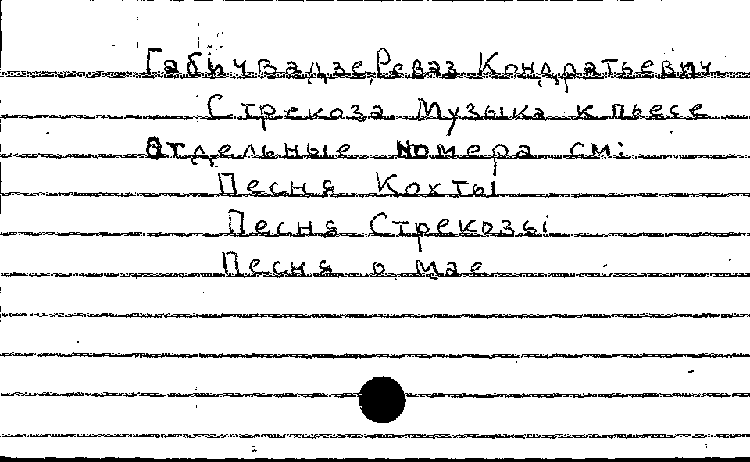 Габичвадзе, Реваз Кондратьевич
Стрекоза Музыка к пьесе
Отдельные номера см:
Песня Кохты
Песня Стрекозы
Песня о мае